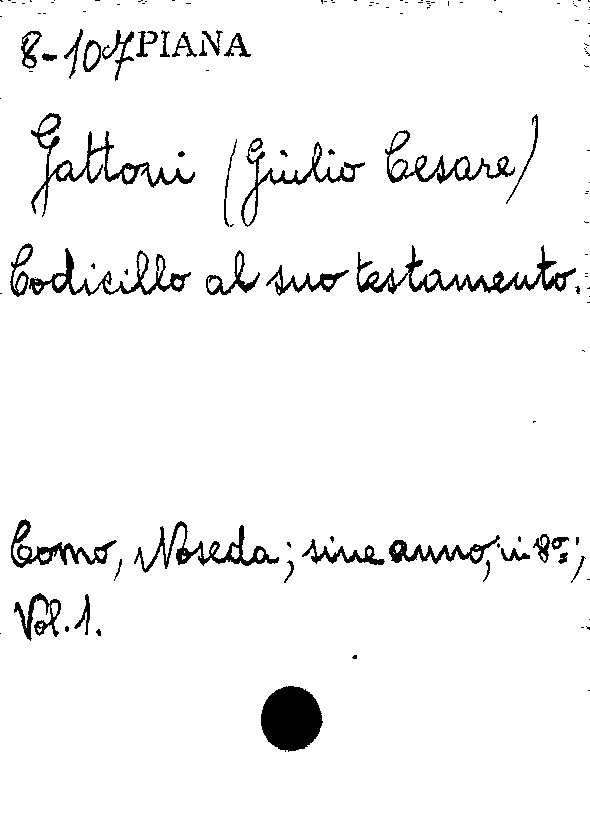 8-107 PIANA
Gattoni (Giulio Cesare)
Codicillo al suo testamento.
Como, Noseda; sine anno, in 8º;
Vol. 1.